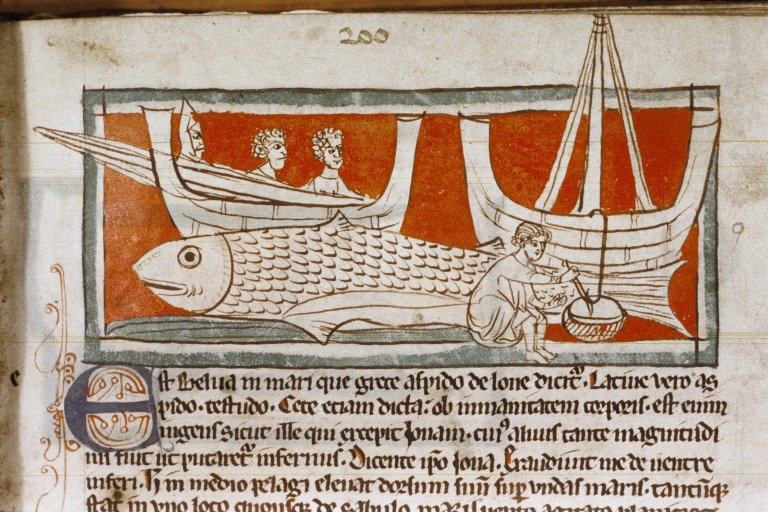 200
Est belua in mari que grece aspido delone dicitr̃. Latine vero as
pido. testudo. Cete eciam dicta: ob inmanitatem corporis. est enim
ingens sicut ille qui excepit Jonam. cuiꝰ aluus tante magnitudi
nis fuit ut putaretr̃ infernus. Dicente ipo Jona. Exaudiuit me de uentre
inferi. in medio pelagi eleuat dorsum suũ sup̃ vndas maris. tantumqȝ
stat in vno loco